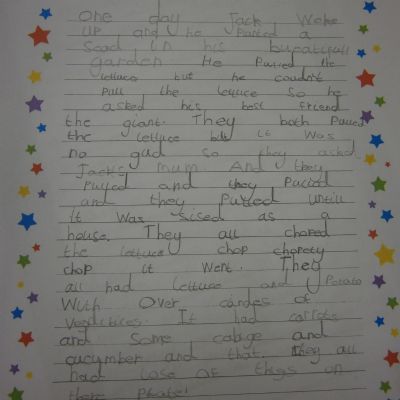 One day Jack Woke
up and he Planted a
Sead in his bueatifull
garden He Pulled the
lettuce but he couldnt
Pull the lettuce So he
asked his best friend
the giant. They both Pulled
the lettuce but it Was
no gud so they asked
Jacks mum. And they
Pulled and they Pulled
and they Pulled untill
it Was sised as a
house. They all choped
the lettuce chop chopety
chop it Went. They
all had lettuce and Potato
With Over candes of
Vegetbices. It had carrots
and Some cabige and
cucymber and that they all
had lose of thigs on
there Plates!